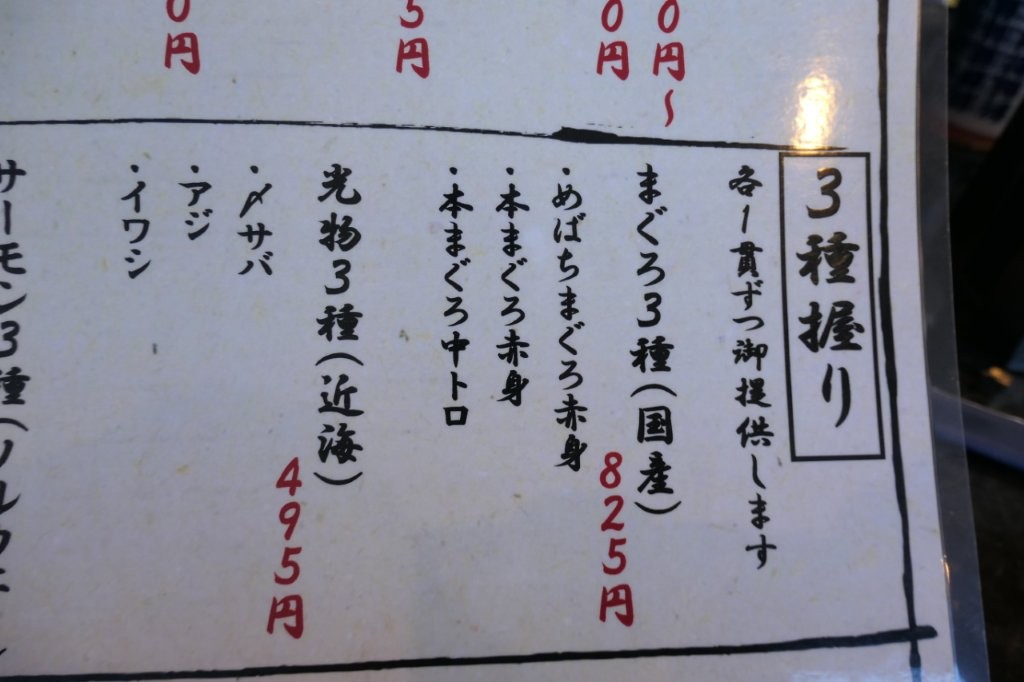 0円〜
0円
5円
0円
3種握り
各1貫ずつ御提供します
まぐろ3種(国産)
825円
・めばちまぐろ赤身
・本まぐろ赤身
・本まぐろ中トロ
光物3種(近海)
495円
・〆サバ
・アジ
・イワシ
サーモン3種(ノルウェ